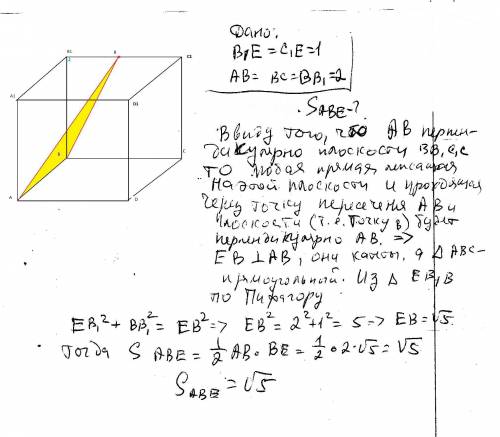 Дано:
B₁E = C₁E = 1
AB = BC = BB₁ = 2
S ABE - ?
Ввиду того, что AB перпен-
дикулярно плоскости BB₁C₁C
то любая прямая лежащая
на этой плоскости и проходящая
через точку пересечения AB и
плоскости (т.е. точку B) будет
перпендикулярно AB. =>
EB ⊥ AB, они катеты, а △ ABC -
прямоугольный. Из △ EB₁B
по Пифагору
EB₁² + BB₁² = EB² => EB² = 2² + 1² = 5 => EB = √5.
Тогда S ABE = 1/2 AB · BE = 1/2 · 2 · √5 = √5
S ABE = √5
B1
E
C1
A1
D1
B
C
A
D